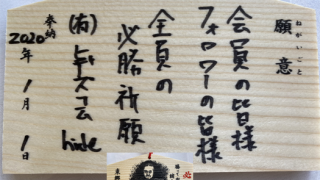 願意
ねがいごと
会員の皆様
フォロワーの皆様
全員の
必勝祈願
(有)
hide
奉納
2020年 1月 1日